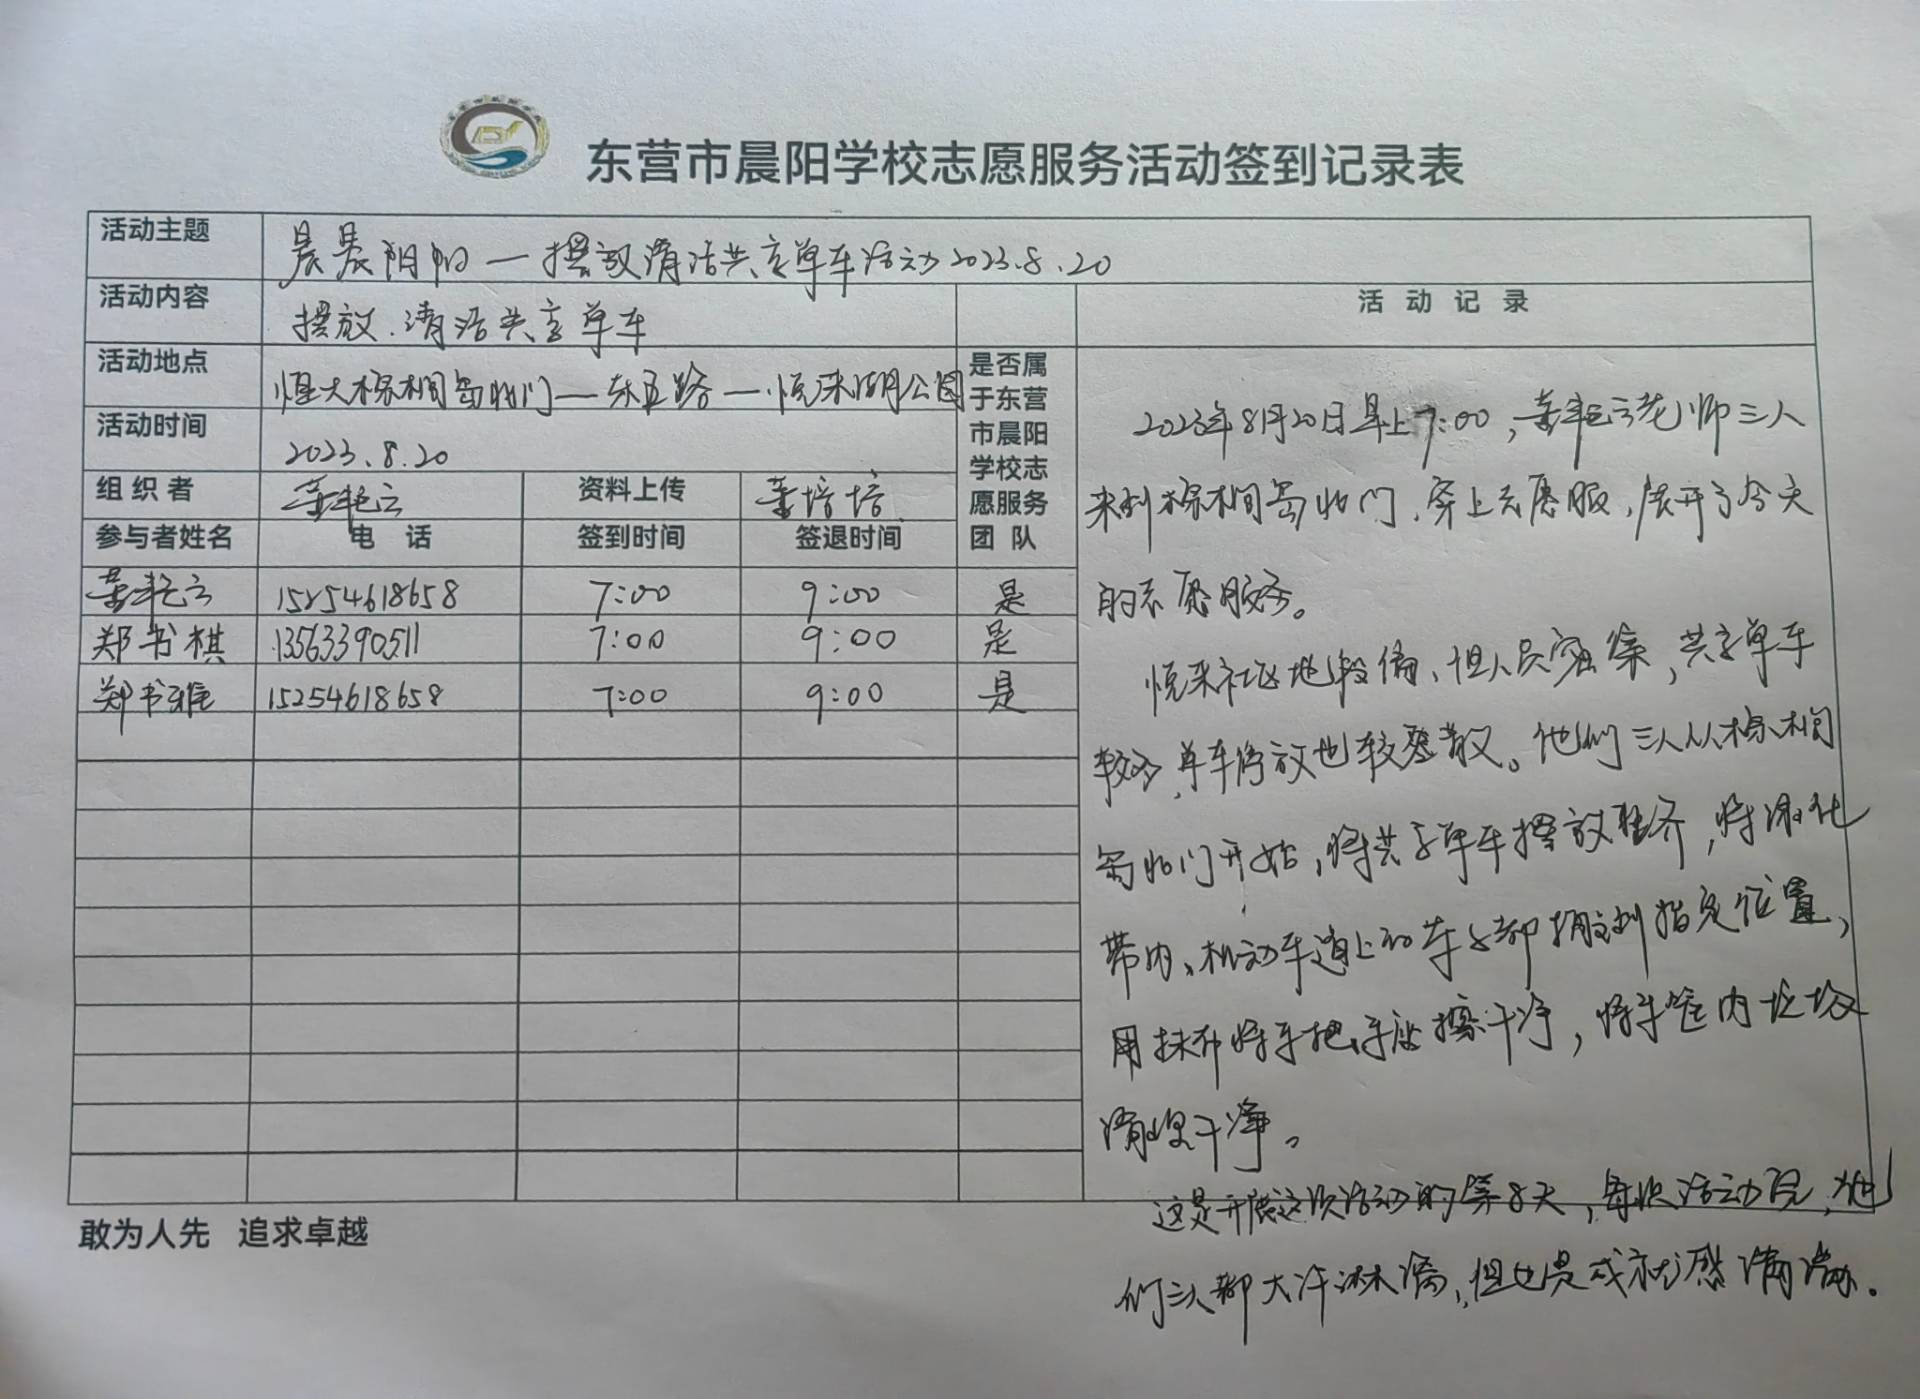 东营市晨阳学校志愿服务活动签到记录表
活动主题 晨晨阴阳一摆放清洁共享单车活动2023.8.20
活动内容 摆放.清洁共享单车
活动记录
活动地点 恒大棕榈岛北门—东五路—悦来湖公园
是否属于东营市晨阳学校志愿服务团队
活动时间 2023.8.20
组织者 资料上传
参与者姓名 电话 签到时间 签退时间
15254618658 7:00 9:00 是
郑书棋 13563390511 7:00 9:00 是
郑书雅 15254618658 7:00 9:00 是
2023年8月20日早上7:00,老师三人
来到棕榈岛北门,穿上志愿服,展开了今天
的志愿服务。
悦来社区地段偏、但人员密集,共享单车
较多,单车停放也较零散。他们三人从棕榈
岛北门开始,将共享单车摆放整齐,将绿化
带内、机动车道上的车子都搬到指定位置,
用抹布将车把、车座擦干净,将车筐内垃圾
清理干净。
这是开展这次活动的第8天,每次活动完,他
们三人都大汗淋漓,但也是成就感满满.
敢为人先 追求卓越